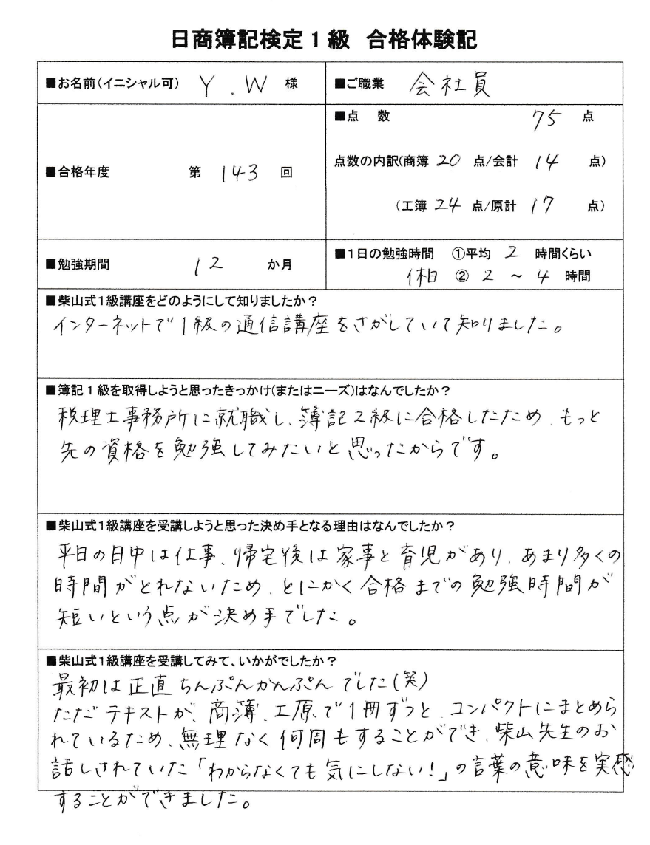 日商簿記検定1級 合格体験記
■お名前(イニシャル可) Y.W 様
■ご職業 会社員
■合格年度 第 143 回
■点 数 75 点
点数の内訳(商簿 20 点/会計 14 点)
(工簿 24 点/原計 17 点)
■勉強期間 12 か月
■1日の勉強時間 ①平均 2 時間くらい
休日 ② 2 ~ 4 時間
■柴山式1級講座をどのようにして知りましたか?
インターネットで1級の通信講座をさがしていて知りました。
■簿記1級を取得しようと思ったきっかけ(またはニーズ)はなんでしたか?
税理士事務所に就職し、簿記2級に合格したため、もっと
先の資格を勉強してみたいと思ったからです。
■柴山式1級講座を受講しようと思った決め手となる理由はなんでしたか?
平日の日中は仕事、帰宅後は家事と育児があり、あまり多くの
時間がとれないため、とにかく合格までの勉強時間が
短いという点が決め手でした。
■柴山式1級講座を受講してみて、いかがでしたか?
最初は正直ちんぷんかんぷんでした(笑)
ただテキストが、商簿、工原で1冊ずつと、コンパクトにまとめら
れているため、無理なく何周もすることができ、柴山先生のお
話しされていた「わからなくても気にしない!」の言葉の意味を実感
することができました。